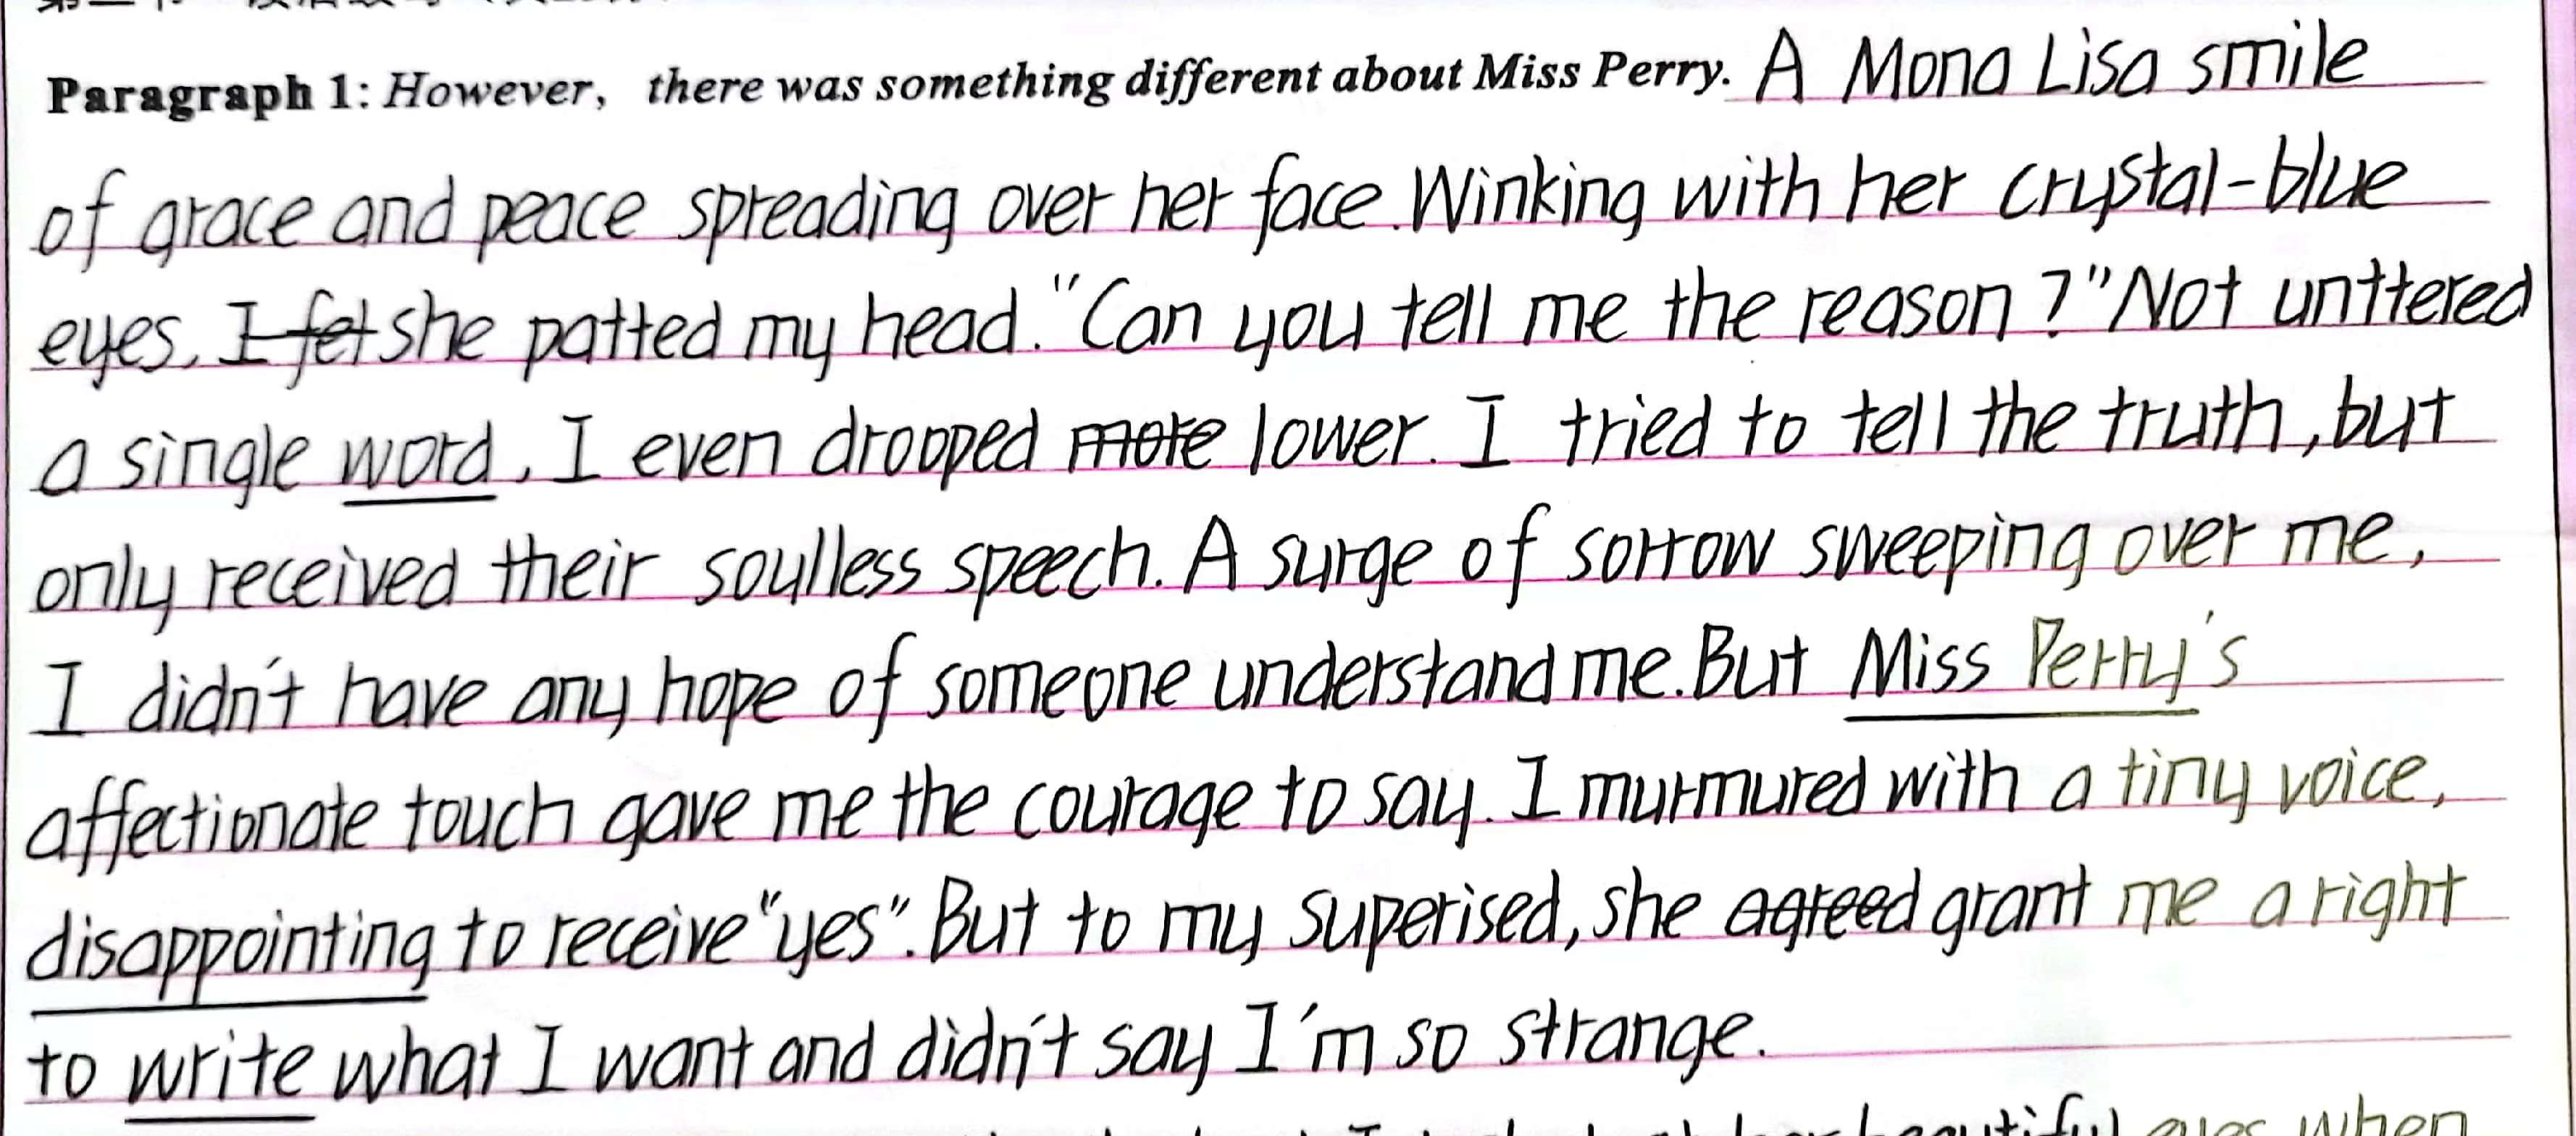 Paragraph 1: However, there was something different about Miss Perry. A Mona Lisa smile
of grace and peace spreading over her face. Winking with her crystal-blue
eyes, I fet she patted my head. "Can you tell me the reason?" Not unttered
a single word, I even dropped more lower. I tried to tell the truth, but
only received their soulless speech. A surge of sorrow sweeping over me,
I didn't have any hope of someone understand me. But Miss Perry's
affectionate touch gave me the courage to say. I murmured with a tiny voice,
disappointing to receive "yes". But to my superised, she agreed grant me a right
to write what I want and didn't say I'm so strange.
beautiful eyes when